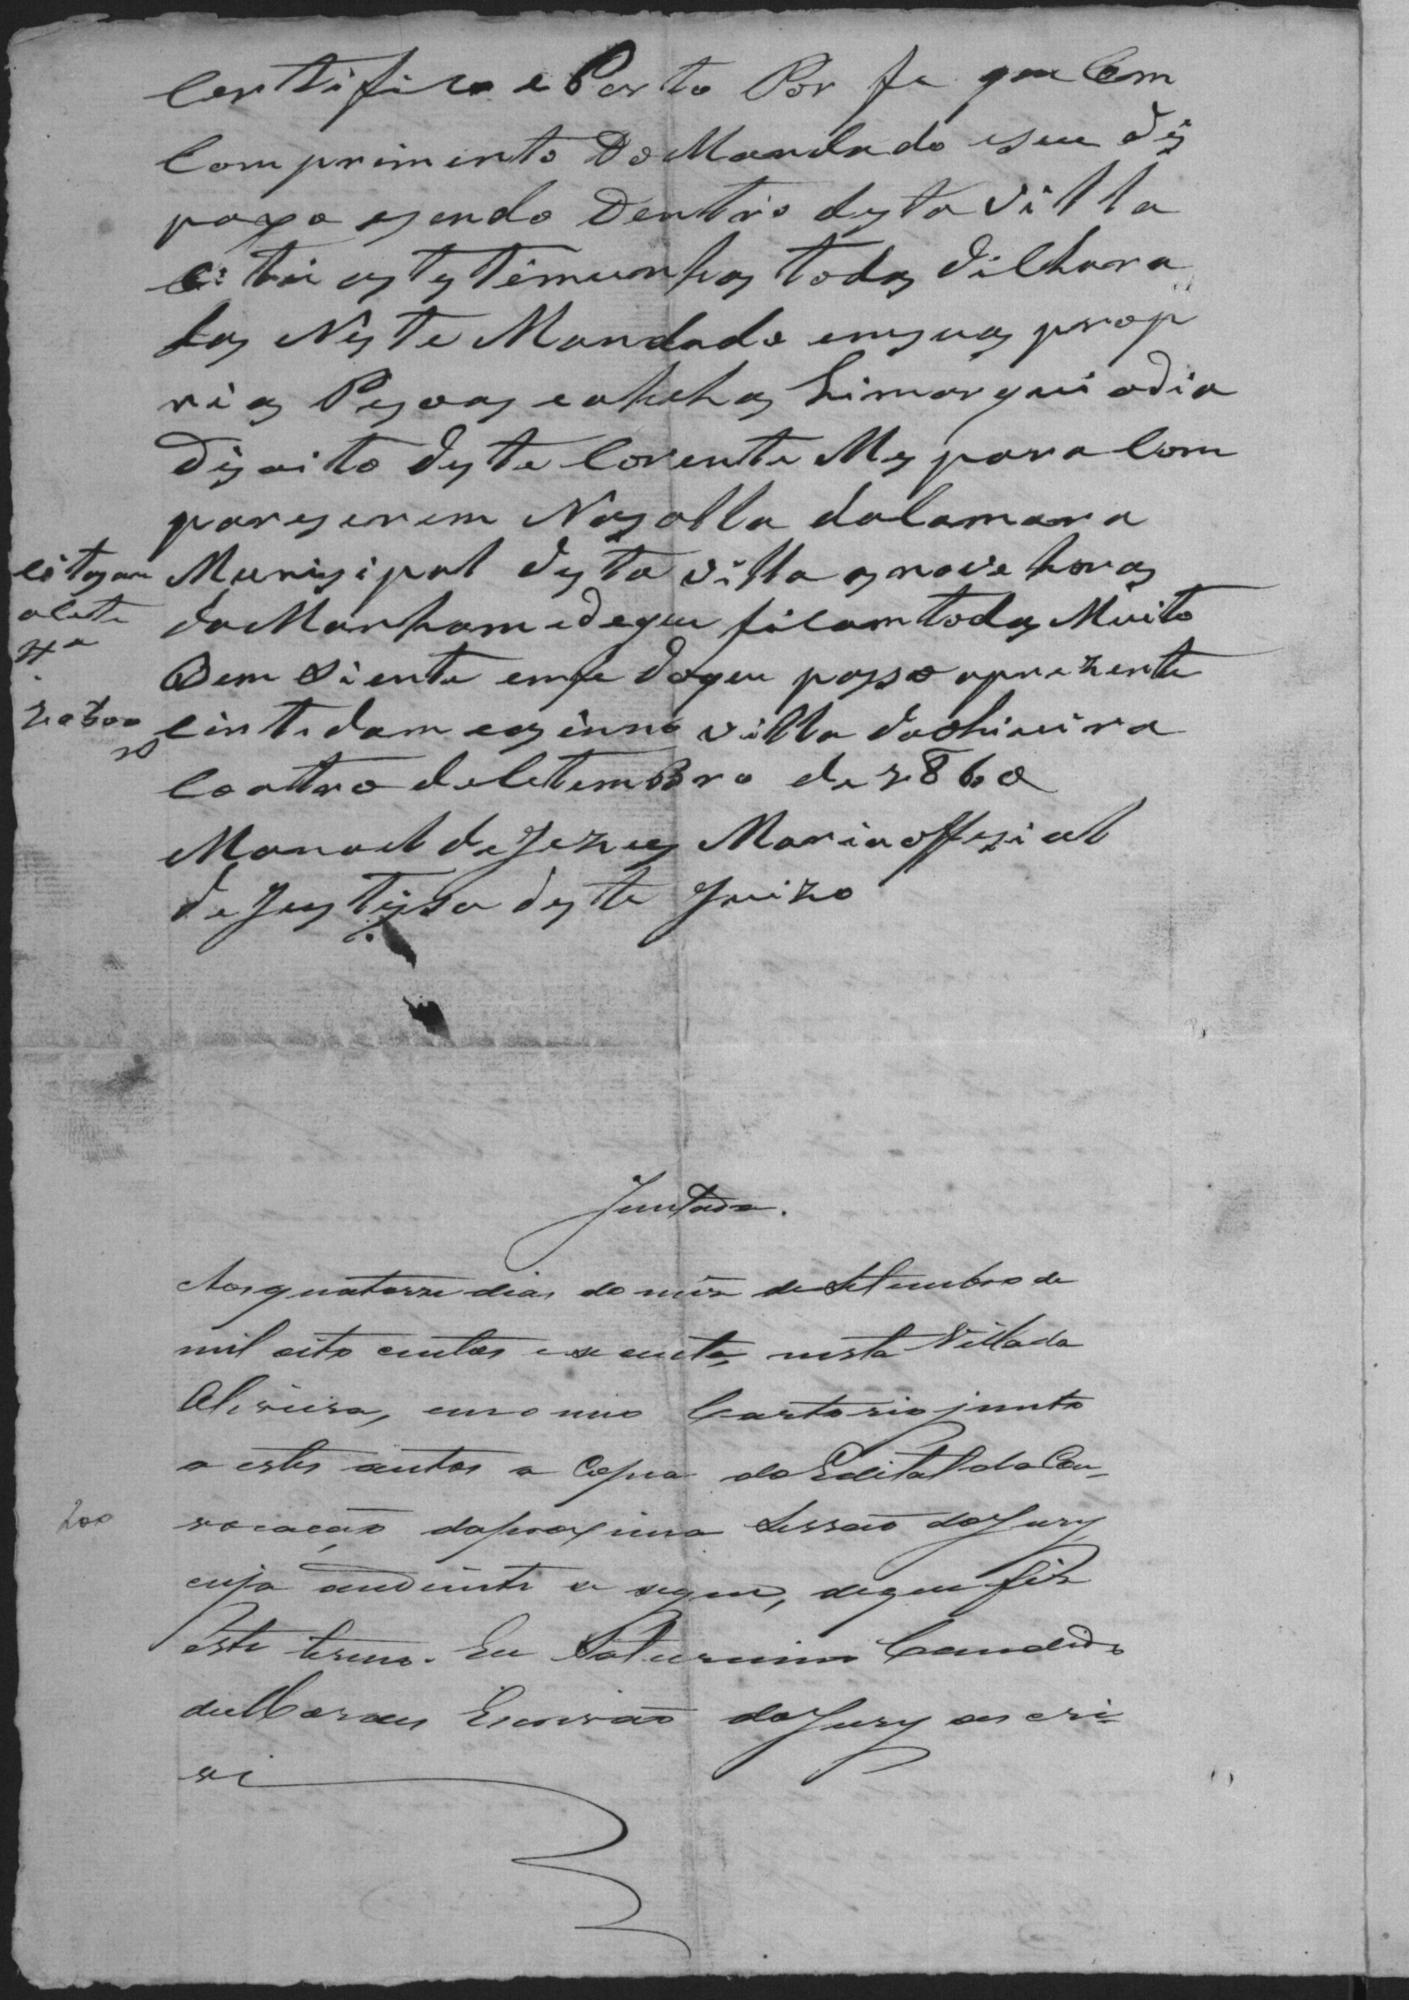 Certifico e Porto Por fe que Em
Comprimento Do Mandado eseu dis
paxo esendo Dentro desta villa
Citei as testemunhas todas dilhara
das Neste Mandado emsuas prop
rias Pesoas eaheha lhimarquei odia
disoito deste Corente Mes para Com
pareserem Nasalla daCamara
Munisipal desta villa asnove horas
daManham edeque ficam todas Muito
Bem Siente emfe doque passo aprezente
Citasam
a
Certidam
villa da
Coatro deSetembro de 1860
Manoel deJezus Maria offesial
deJustisa deste Juizo
Juntada.
Aos quatorze dias do mez de Setembro de
mil oito centos e secenta, nesta Villa da
Oliveira, em o meo Cartorio junto
a estes autos a Copia do Edital da Con-
200
vocação daproxima Sessão doJury
cuja adiante se segue, deque fiz
este termo. Eu Saturnino Candido
de Moraes Escrivão doJury o escri-
vi